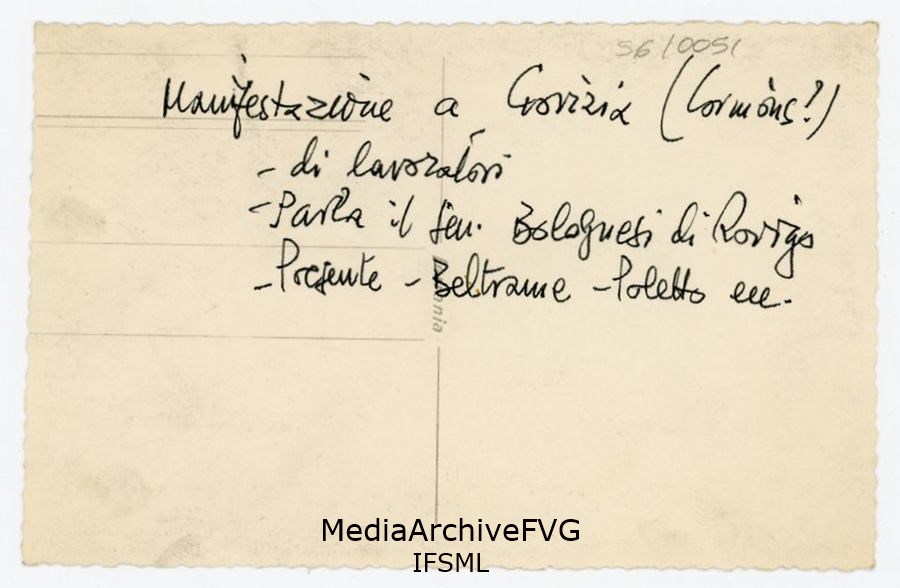 S6/0051
Manifestazione a Gorizia (Cormòns?)
- di lavoratori
- Parla il Sen. Bolognesi di Rovigo
- Presente - Beltrame - Poletto ecc.
nia
MediaArchiveFVG
IFSML